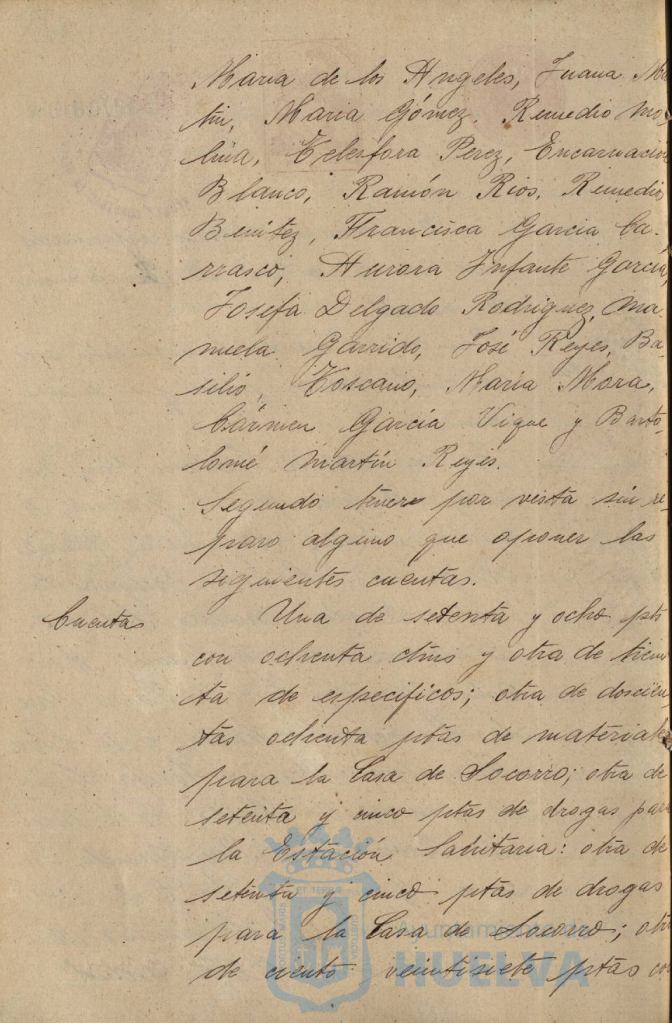 Maria de los Angeles, Juana Mar
tin, Maria Gómez. Remedio Mo
lina, Telesfora Perez, Encarnacion
Blanco, Ramón Rios. Remedio
Benitez, Francisca Garcia Ca-
rrasco, Aurora Infante Garcia,
Josefa Delgado Rodriguez, Ma-
nuela Garrido, José Reyes, Ba-
silio, Toscano, Maria Mora,
Cármen García Vique y Barto-
lomé Martín Reyes.
Segundo tener por vista sin re-
paro alguno que oponer las
siguientes cuentas.
Cuentas
Una de setenta y ocho pts
con ochenta ctms y otra de trein
ta de especificos; otra de doscien
tas ochenta ptas de materiales
para la Casa de Socorro; otra de
setenta y cinco ptas de drogas para
la Estación Sanitaria: otra de
setenta y cinco ptas de drogas
para la Casa de Socorro; otra
de ciento veintisiete ptas con
HUELVA